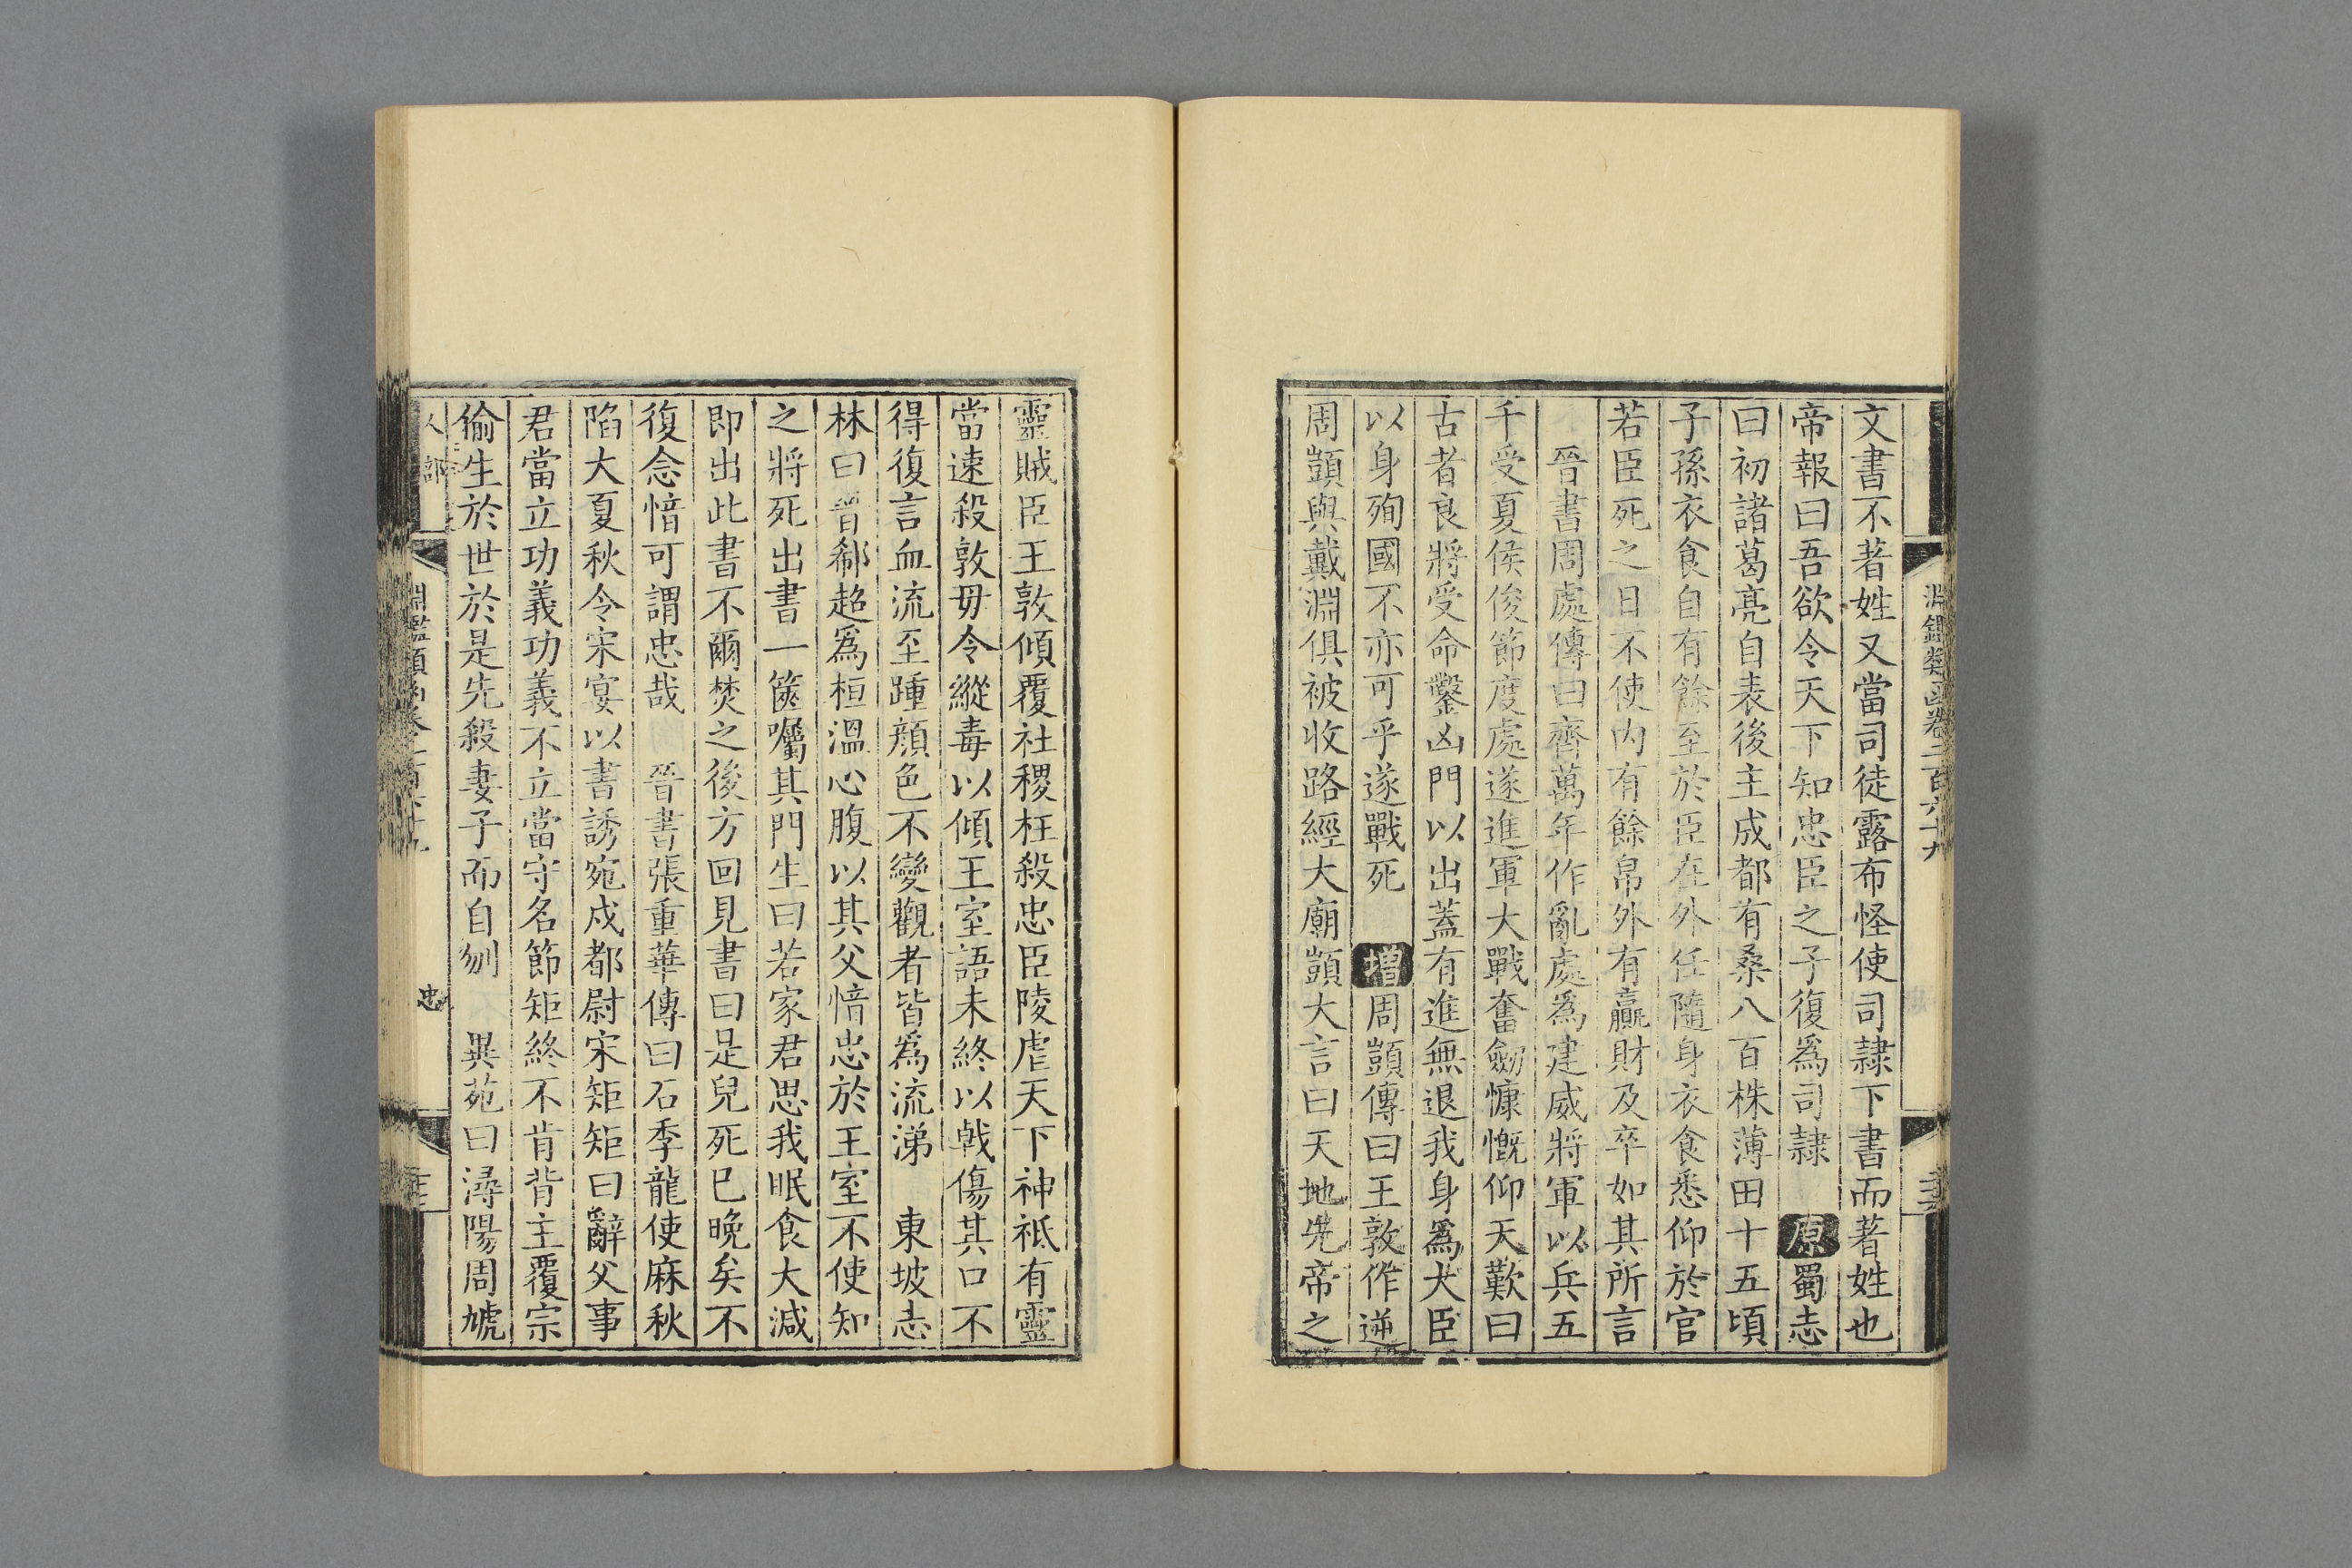 文書不著姓又當司徒露布怪使司隷下書而著姓也
帝報曰吾欲令天下知忠臣之子復爲司隷 原蜀志
曰初諸葛亮自表後主成都有桑八百株薄田十五頃
子孫衣食自有餘至於臣在外任隨身衣食悉仰於官
若臣死之日不使内有餘帛外有贏財及卒如其所言
晉書周處傳曰齊萬年作亂處爲建威將軍以兵五
千受夏侯俊節度處遂進軍大戰奮劒慷慨仰天歎曰
古者良將受命鑿凶門以出蓋有進無退我身爲大臣
以身殉國不亦可乎遂戰死 增周顗傳曰王敦作逆
周顗與戴淵俱被收路經大廟顗大言曰天地先帝之
靈賊臣王敦傾覆社稷枉殺忠臣陵虐天下神祇有靈
當速殺敦毋令縱毒以傾王室語未終以戟傷其口不
得復言血流至踵顔色不變觀者皆爲流涕 東坡志
林曰晉郗超爲桓溫心腹以其父愔忠於王室不使知
之將死出書一篋囑其門生曰若家君思我眠食大減
即出此書不爾焚之後方回見書曰是兒死已晚矣不
復念愔可謂忠哉 晉書張重華傳曰石季龍使麻秋
陷大夏秋令宋宴以書誘宛戍都尉宋矩矩曰辭父事
君當立功義功義不立當守名節矩終不肯背主覆宗
偷生於世於是先殺妻子而自刎 異苑曰潯陽周虓
淵鑑類函卷二百六十九
人部
忠